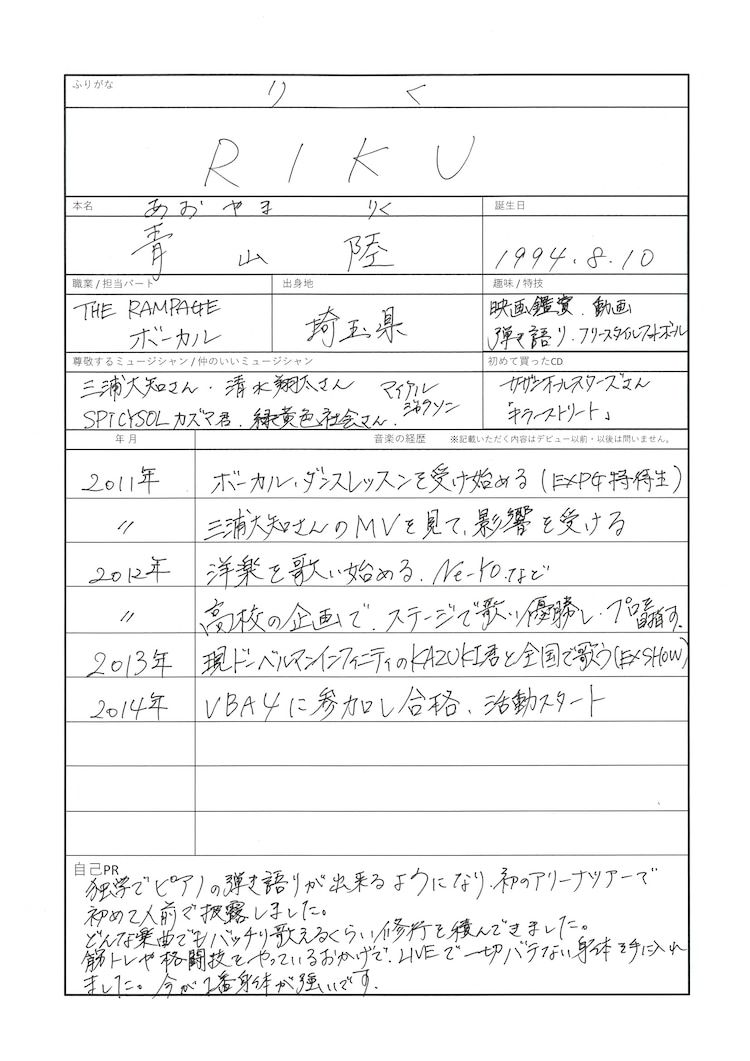 ふりがな
りく
RIKU
本名
誕生日
あおやま りく
青山 陸
1994.8.10
職業/担当パート
出身地
趣味/特技
THE RAMPAGE
ボーカル
埼玉県
映画鑑賞、動画
弾き語り・フリースタイルフットボール
尊敬するミュージシャン/仲のいいミュージシャン
初めて買ったCD
三浦大知さん・清水翔太さん マイケル
ジャクソン
SPiCYSOL カズマ君、緑黄色社会さん、
サザンオールスターズさん
「キラーストリート」
年月
音楽の経歴 ※記載いただく内容はデビュー以前・以後は問いません。
2011年 ボーカル、ダンスレッスンを受け始める(EXPG特待生)
〃 三浦大知さんのMVを見て、影響を受ける
2012年 洋楽を歌い始める、Ne-Yo.など
〃 高校の企画で、ステージで歌い優勝し、プロを目指す。
2013年 現ドーベルマンインフィニティのKAZUKI君と全国で歌う(EXSHOW)
2014年 VBA4に参加し合格、活動スタート
自己PR
独学でピアノの弾き語りが出来るようになり、初のアリーナツアーで
初めて人前で披露しました。
どんな楽曲でもバッチリ歌えるくらい修行を積んできました。
筋トレや格闘技をやっているおかげで、LIVEで一切バテない身体を手に入れ
ました。今が1番身体が強いです。